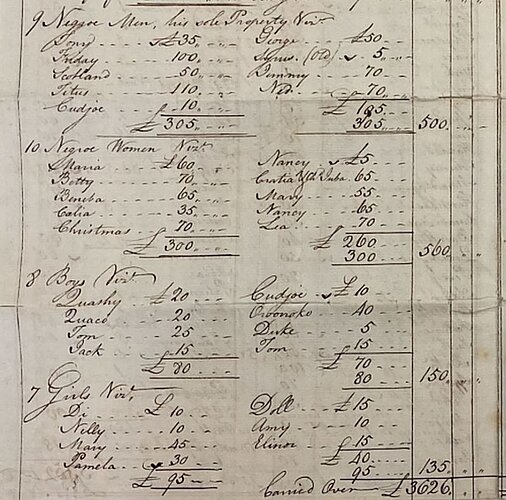 9 Negroe Men, his sole Property Vizt.
Tony £35 George £50
Friday 100 (Old) 5
Scotland 50 Jemmy 70
Titus 110 Ned 70
Cudjoe 10 £ 195
£ 305 305 500
10 Negroe Women Vizt.
Maria £60 Nancy £5
Betty 70 Cratia Juba 65
Beneba 65 Mary 55
Calia 35 Nancy 65
Christmas 70 Lea 70
£ 300 £ 260
300 560
8 Boys Vizt.
Quashy £20 Cudjoe £10
Quaco 20 Oronoko 40
Tom 25 Duke 5
Jack 15 Tom 15
£ 80 £ 70
80 150
7 Girls Vizt.
Di £10 Doll £15
Nelly 10 Amy 10
Mary 45 Elinor 15
Pamela 30 £ 40
£ 95 95 135
Carried Over £3626